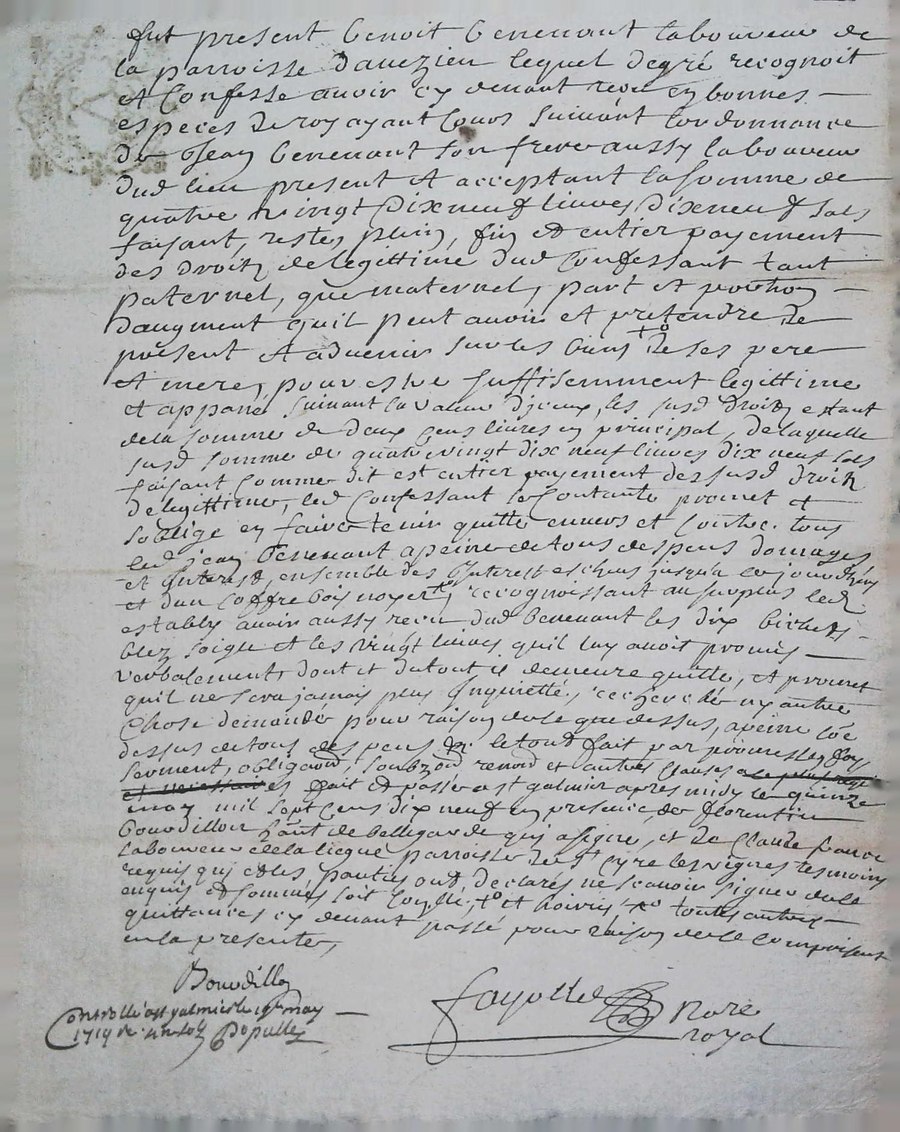 fut present Benoit Benevant laboureur de
la parroisse davezieu lequel degré recognoit
et Confesse avoir cy devant receu en bonnes
especes de roy ayant Cours suivant lordonnance
de Jean Benevant son frere aussy laboureur
dud lieu present et acceptant la somme de
quatre vingt dix neuf livres dix neuf sols
faisant, restes, plein, fin et entier payement
des droitz de legittime dud Confessant tant
paternel, que maternel, part et portion
daugment quil peut avoir et pretendre de
present et advenir sur les biens +o de ses pere
et mere, pour estre suffisemment legittime
et appané suivant la valeur diceux, les susd droitz estant
de la somme de deux Cens livres en principal, de laquelle
susd somme de quatre vingt dix neuf livres dix neuf sols
faisant Comme dit est entier payement des susd droitz
de legittime, led Confessant se Contante promet et
soblige en faire tenir quitte envers et Contre tous
led jean Benevant a peine de tous despens domages
et Interest, ensemble des Interest eschus jusqua ce jourdhuy
et dun Coffre bois noyer, recognoissant au surplus led
estably avoir aussy receu dud benevant les dix bichets
blez soigle et les vingt livres quil luy avoit promis
verballement dont et du tout il demeure quitte, et promet
quil ne sera jamais plus Inquietté, recherché ny autre
Chose demandé pour raison de ce que dessus, a peine Co̅e
dessus de tous despens &c. le tout fait par promesses foy
serment, obligaõn, soubzõn renoñ et autres clauses
es fait et passé a st galmier apres midy le quinze
may mil sept Cens dix neuf en presence de florentin
bourdillon hãnt de bellegarde qui a signé, et de Claude
laboureur de la parroisse de st Cyre les vignes tesmoins
requis qui et les parties ont declarés ne scavoir signer de ce
enquis et sommes soit Con̅llé, +o et hoirie, +o toutes autres
quittances cy devant passé pour raison de ce Comprises
en la presente,
Bourdillon
Controllé a st galmier le 19e may
1719 re: Populle
fayolle Nore
royal